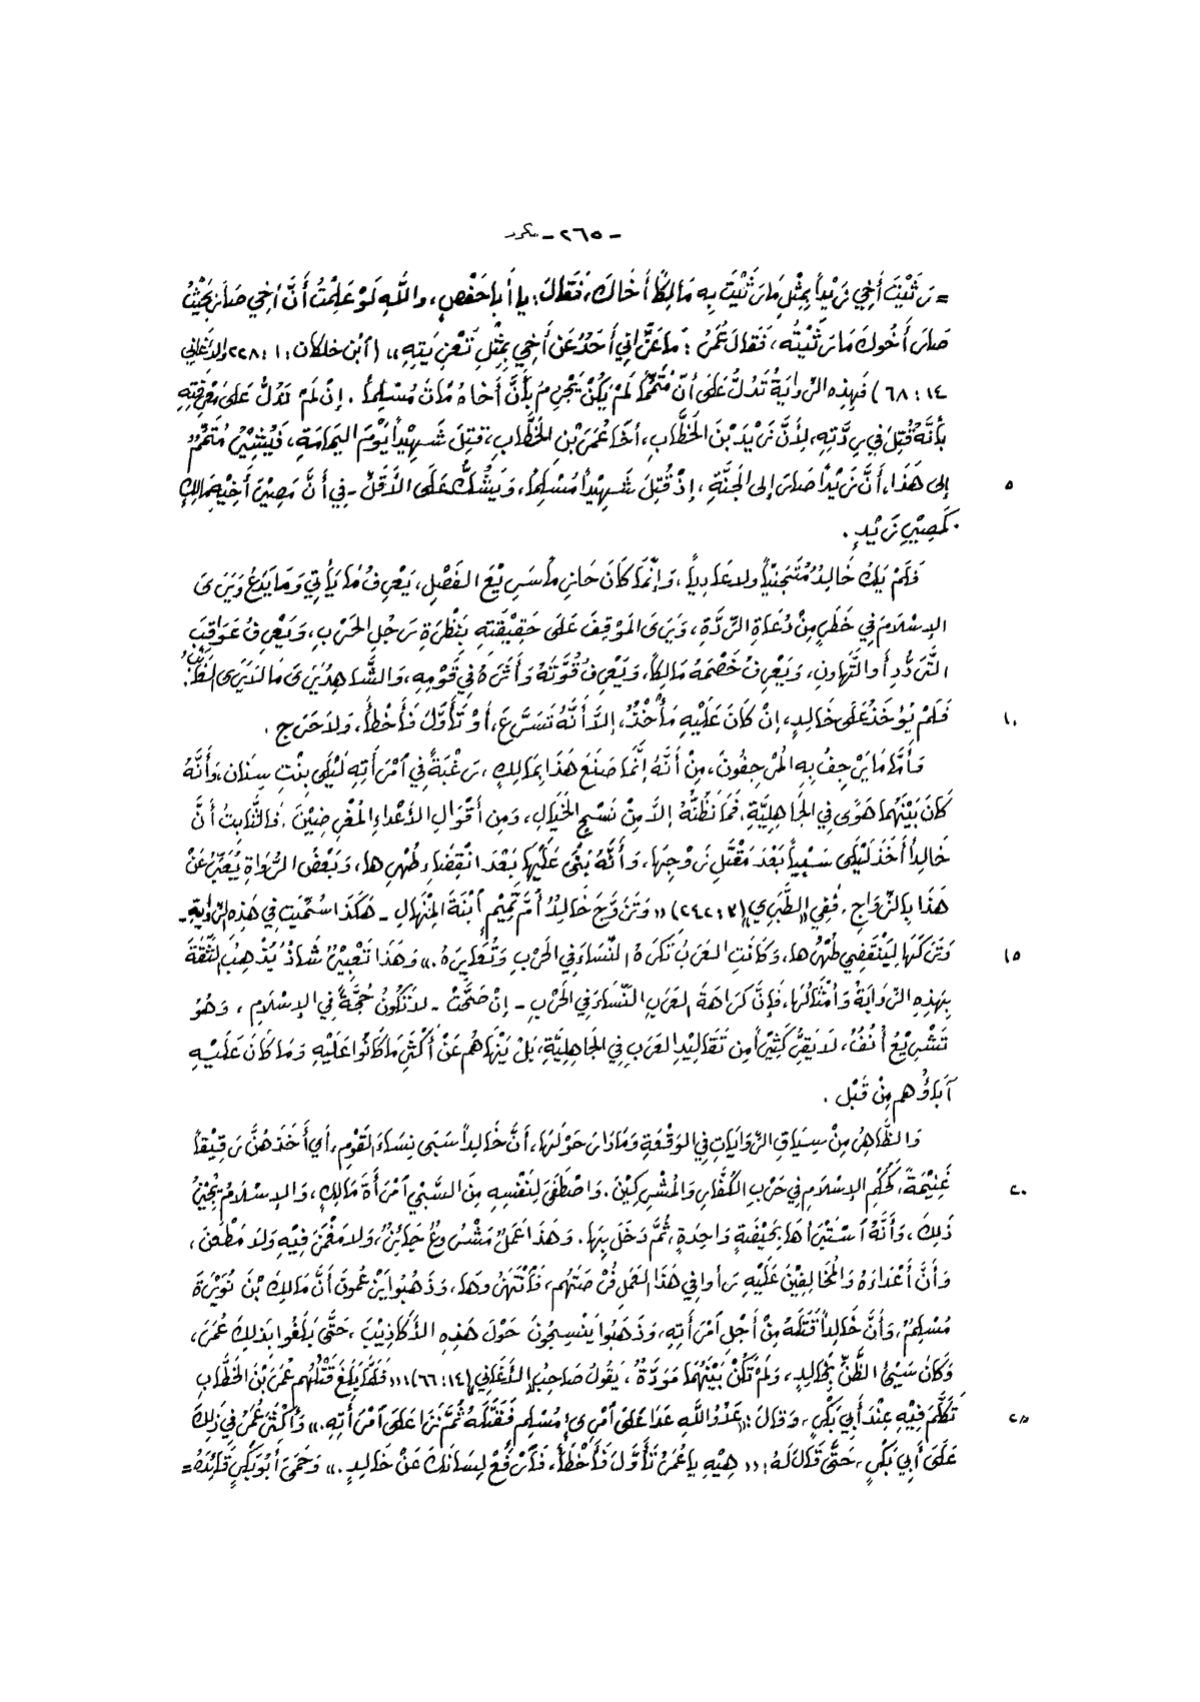 - ٢٦٥ - مكرر
= رَثَيْتَ أَخِي زَيْداً بِمِثْلِ مَا رَثَيْتَ بِهِ مَالِكاً أَخَاكَ، فَقَالَ: يا أَبا حَفْصٍ، واللهِ لَوْ عَلِمْتُ أَنَّ أَخِي صَارَ بِحَيْثُ
صَارَ أَخُوكَ مَا رَثَيْتُه، فَقَالَ عُمَرُ: مَا عَزَّانِي أَحَدٌ عَن أَخِي بِمِثْلِ تَعْزِيَتِهِ» (ابن خلكان: ١: ٢٢٨ والأغاني
١٤: ٦٨) فَهذِهِ الرِّوايَةُ تَدُلُّ عَلَى أَنَّ مُتَمِّماً لَمْ يَكُنْ يَجْزِمُ بِأَنَّ أَخَاهُ مَاتَ مُسْلِماً. إِنْ لَمْ تَدُلَّ عَلَى مَعْرِفَتِهِ
بِأَنَّهُ قُتِلَ فِي رِدَّتِهِ، لِأَنَّ زَيْدَ بْنَ الْخَطَّابِ، أَخَا عُمَرَ بْنِ الْخَطَّابِ، قُتِلَ شَهِيْداً يَوْمَ الْيَمَامَةِ، فَيُشِيْرُ مُتَمِّمٌ
إِلَى هَذَا، أَنَّ زَيْداً صَارَ إِلى الجَنَّةِ، إِذْ قُتِلَ شَهِيْداً مُسْلِماً، وَيَشُكُّ - عَلَى الأَقَلِّ - فِي أَنَّ مَصِيْرَ أَخِيْهِ مَالِكٍ
كَمَصِيْرِ زَيْدٍ.
فَلَمْ يَكُ خَالِدٌ مُتَجَنِّياً ولا عَادِياً، وَإِنَّمَا كَانَ حَازِماً سَرِيْعَ الفَصْلِ، يَعْرِفُ مَا يَأْتِي وَمَا يَدَعُ وَيَرَى
الإِسْلَامَ فِي خَطَرٍ مِنْ دُعَاةِ الرِّدَّةِ، وَيَرَى المَوْقِفَ عَلَى حَقِيْقَتِهِ بِنَظْرَةِ رَجُلِ الحَرْبِ، وَيَعْرِفُ عَوَاقِبَ
التَّرَدُّدِ أو التَّهَاونِ، وَيَعْرِفُ خَصْمَهُ مَالِكاً، وَيَعْرِفُ قُوَّتَهُ وَأَثَرَهُ فِي قَوْمِهِ، وَالشَّاهِدُ يَرَى مَا لَا يَرَى الغَائِبُ.
فَلَمْ يُؤْخَذْ عَلَى خَالِدٍ، إِنْ كَانَ عَلَيْهِ مَأْخَذٌ، إِلَّا أَنَّهُ تَسَرَّعَ، أَوْ تَأَوَّلَ فَأَخْطَأَ، وَلَا حَرَج.
وَأَمَّا مَا يُرْجِفُ بِهِ المُرْجِفُونَ، مِنْ أَنَّهُ إِنَّمَا صَنَعَ هَذَا بِمَالِكٍ، رَغْبَةً فِي امْرَأَتِهِ لَيْلَى بِنْتِ سِنَان، وَأَنَّهُ
كَانَ بَيْنَهُمَا هَوًى فِي الجَاهِلِيَّةِ، فَمَا نَظُنُّهُ إِلاَّ مِنْ نَسْجِ الخَيَالِ، وَمِن أَقْوَالِ الأَعْدَاءِ المُغْرِضِيْنَ. فَالثَّابِتُ أَنَّ
خَالِداً أَخَذَ لَيْلَى سَبْياً بَعْدَ مَقْتَلِ زَوْجِهَا، وَأَنَّهُ بَنَى عَلَيْهَا بَعْدَ انْقِضَاءِ طُهْرِهَا، وَبَعْضُ الرُّوَاةِ يُعَبِّرُ عَنْ
هَذَا بِالزَّوَاجِ. فَفِي الطَّبَرِي (٣: ٢٤٢) «وَتَزَوَّجَ خَالِدٌ أُمَّ تَمِيْمٍ ابْنَةَ المِنْهَالِ - هَكَذَا سُمِّيَتْ فِي هَذِهِ الرِّوَايَةِ -
وَتَرَكَهَا لِيَنْقَضِيَ طُهْرُهَا، وَكَانَتِ العَرَبُ تَكْرَهُ النِّسَاءَ فِي الحَرْبِ وَتُعَايِرَهُ.» وَهَذَا تَعْبِيْرٌ شَاذٌ يُذْهِبُ الثِّقَةَ
بِهَذِهِ الرِّوَايَةِ وَأَمْثَالِهَا، فَإِنَّ كَرَاهَةَ العَرَبِ النِّسَاءَ فِي الحَرْبِ - إِنْ صَحَّتْ - لَا تَكُونُ حُجَّةً فِي الإِسْلَامِ، وَهُوَ
تَشْرِيْعٌ أُنُفٌ، لَا يَقِرُّ كَثِيْراً مِن تَقَالِيْدِ العَرَبِ فِي الجَاهِلِيَّةِ، بَلْ يَنْهَاهُم عَنْ أَكْثَرِ مَا كَانُوا عَلَيْهِ وَمَا كَانَ عَلَيْهِ
آبَاؤُهم مِنْ قَبْل.
وَالظَّاهِرُ مِنْ سِيَاقِ الرِّوَايَاتِ فِي الوَقْعَةِ وَمَا دَارَ حَوْلَهَا، أَنَّ خَالِداً سَبَى نِسَاءَ القَوْمِ، أَي أَخَذَهُنَّ رَقِيْقاً
غَنِيْمَةً، كَحُكْمِ الإِسْلَامِ فِي حَرْبِ الكُفَّارِ وَالمُشْرِكِيْنَ. وَاصْطَفَى لِنَفْسِهِ مِنَ السَّبْيِ امْرَأَةَ مَالِكٍ، وَالإِسْلَامُ يُجِيْزُ
ذَلِكَ، وَأَنَّهُ اسْتَبْرَأَهَا بِحَيْضَةٍ وَاحِدَةٍ، ثُمَّ دَخَلَ بِهَا. وَهَذَا عَمَلٌ مَشْرُوعٌ جَائِزٌ، وَلا مَغْمَزَ فِيْهِ وَلَا مَطْعَنَ،
وَأَنَّ أَعْدَاءَهُ وَالمُخَالِفِيْنَ عَلَيْهِ رَأوا فِي هَذَا العَمَلِ فُرْصَتَهُم، فَانْتَهَزُوهَا، وَذَهَبُوا يَزْعُمونَ أَنَّ مَالِكَ بْنَ نُوَيْرَةَ
مُسْلِمٌ، وَأَنَّ خَالِداً قَتَلَهُ مِنْ أَجْلِ امْرَأَتِهِ، وَذَهَبُوا يَنْسِجُونَ حَوْلَ هَذِهِ الأَكَاذِيْبَ، حَتَّى بَلَغُوا بِذَلِكَ عُمَرَ،
وَكَانَ سَيِّئَ الظَّنِّ بِخَالِدٍ، وَلَمْ تَكُنْ بَيْنَهُمَا مَوَدَّةٌ، يَقُولُ صَاحِبُ الأَغَانِي (١٤: ٦٦): «فَلَمَّا بَلَغَ قَتْلُهُم عُمَرَ بْنَ الخَطَّابِ
تَكَلَّمَ فِيْهِ عِنْدَ أَبِي بَكْرٍ، وَقَالَ: عَدُوُّ اللهِ عَدَا عَلَى امْرِئٍ مُسْلِمٍ فَقَتَلَهُ ثُمَّ نَزَا عَلَى امْرَأَتِهِ.» وَأَكْثَرَ عُمَرُ فِي ذَلِكَ
عَلَى أَبِي بَكْرٍ، حَتَّى قَالَ لَهُ: «هِيْهِ يا عُمَرُ تَأَوَّلَ فَأَخْطَأَ، فَارْفَعْ لِسَانَكَ عَنْ خَالِدٍ.» وَحَمَى أَبُو بَكْرٍ قَائِدَهُ =
٥
١٠
١٥
٢٠
٢٥